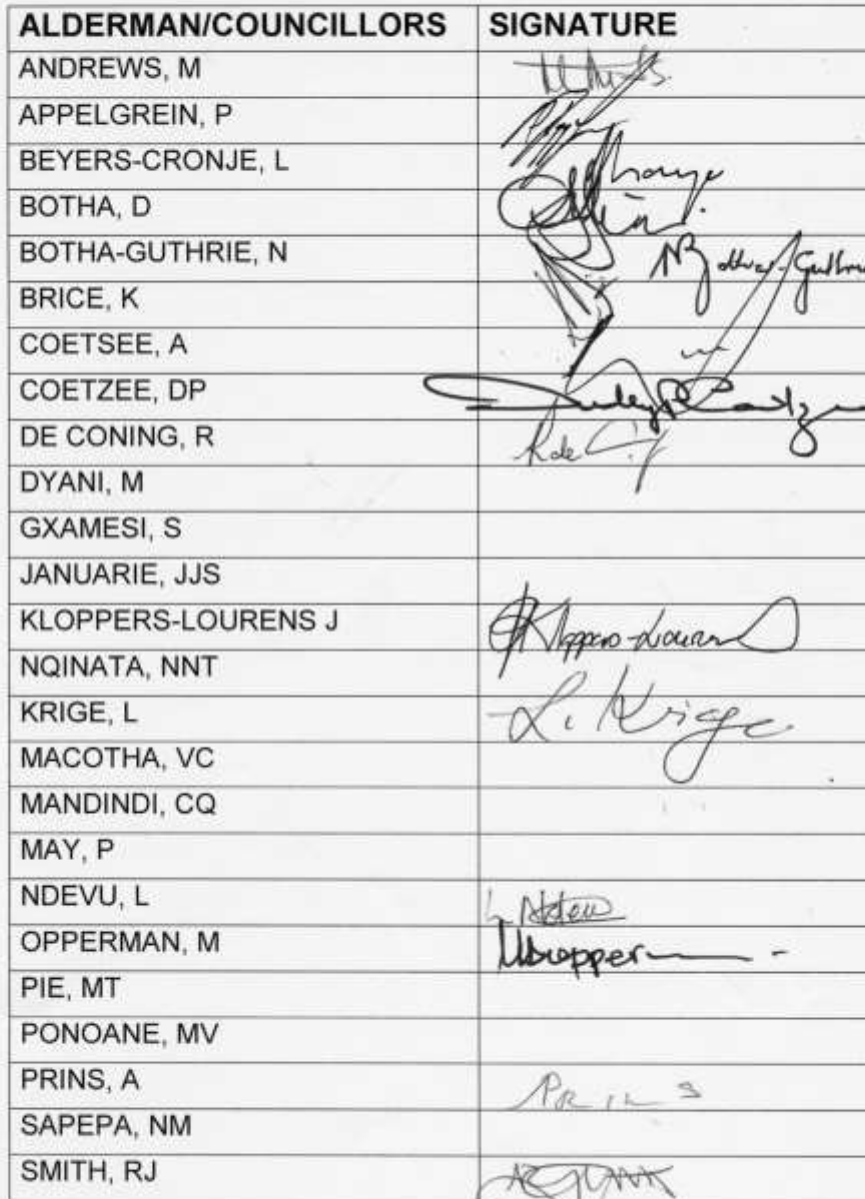 ALDERMAN/COUNCILLORS SIGNATURE
ANDREWS, M
APPELGREIN, P
BEYERS-CRONJE, L
BOTHA, D
BOTHA-GUTHRIE, N
BRICE, K
COETSEE, A
COETZEE, DP
DE CONING, R
DYANI, M
GXAMESI, S
JANUARIE, JJS
KLOPPERS-LOURENS J
NQINATA, NNT
KRIGE, L L. Krige
MACOTHA, VC
MANDINDI, CQ
MAY, P
NDEVU, L
OPPERMAN, M
PIE, MT
PONOANE, MV
PRINS, A PRINS
SAPEPA, NM
SMITH, RJ